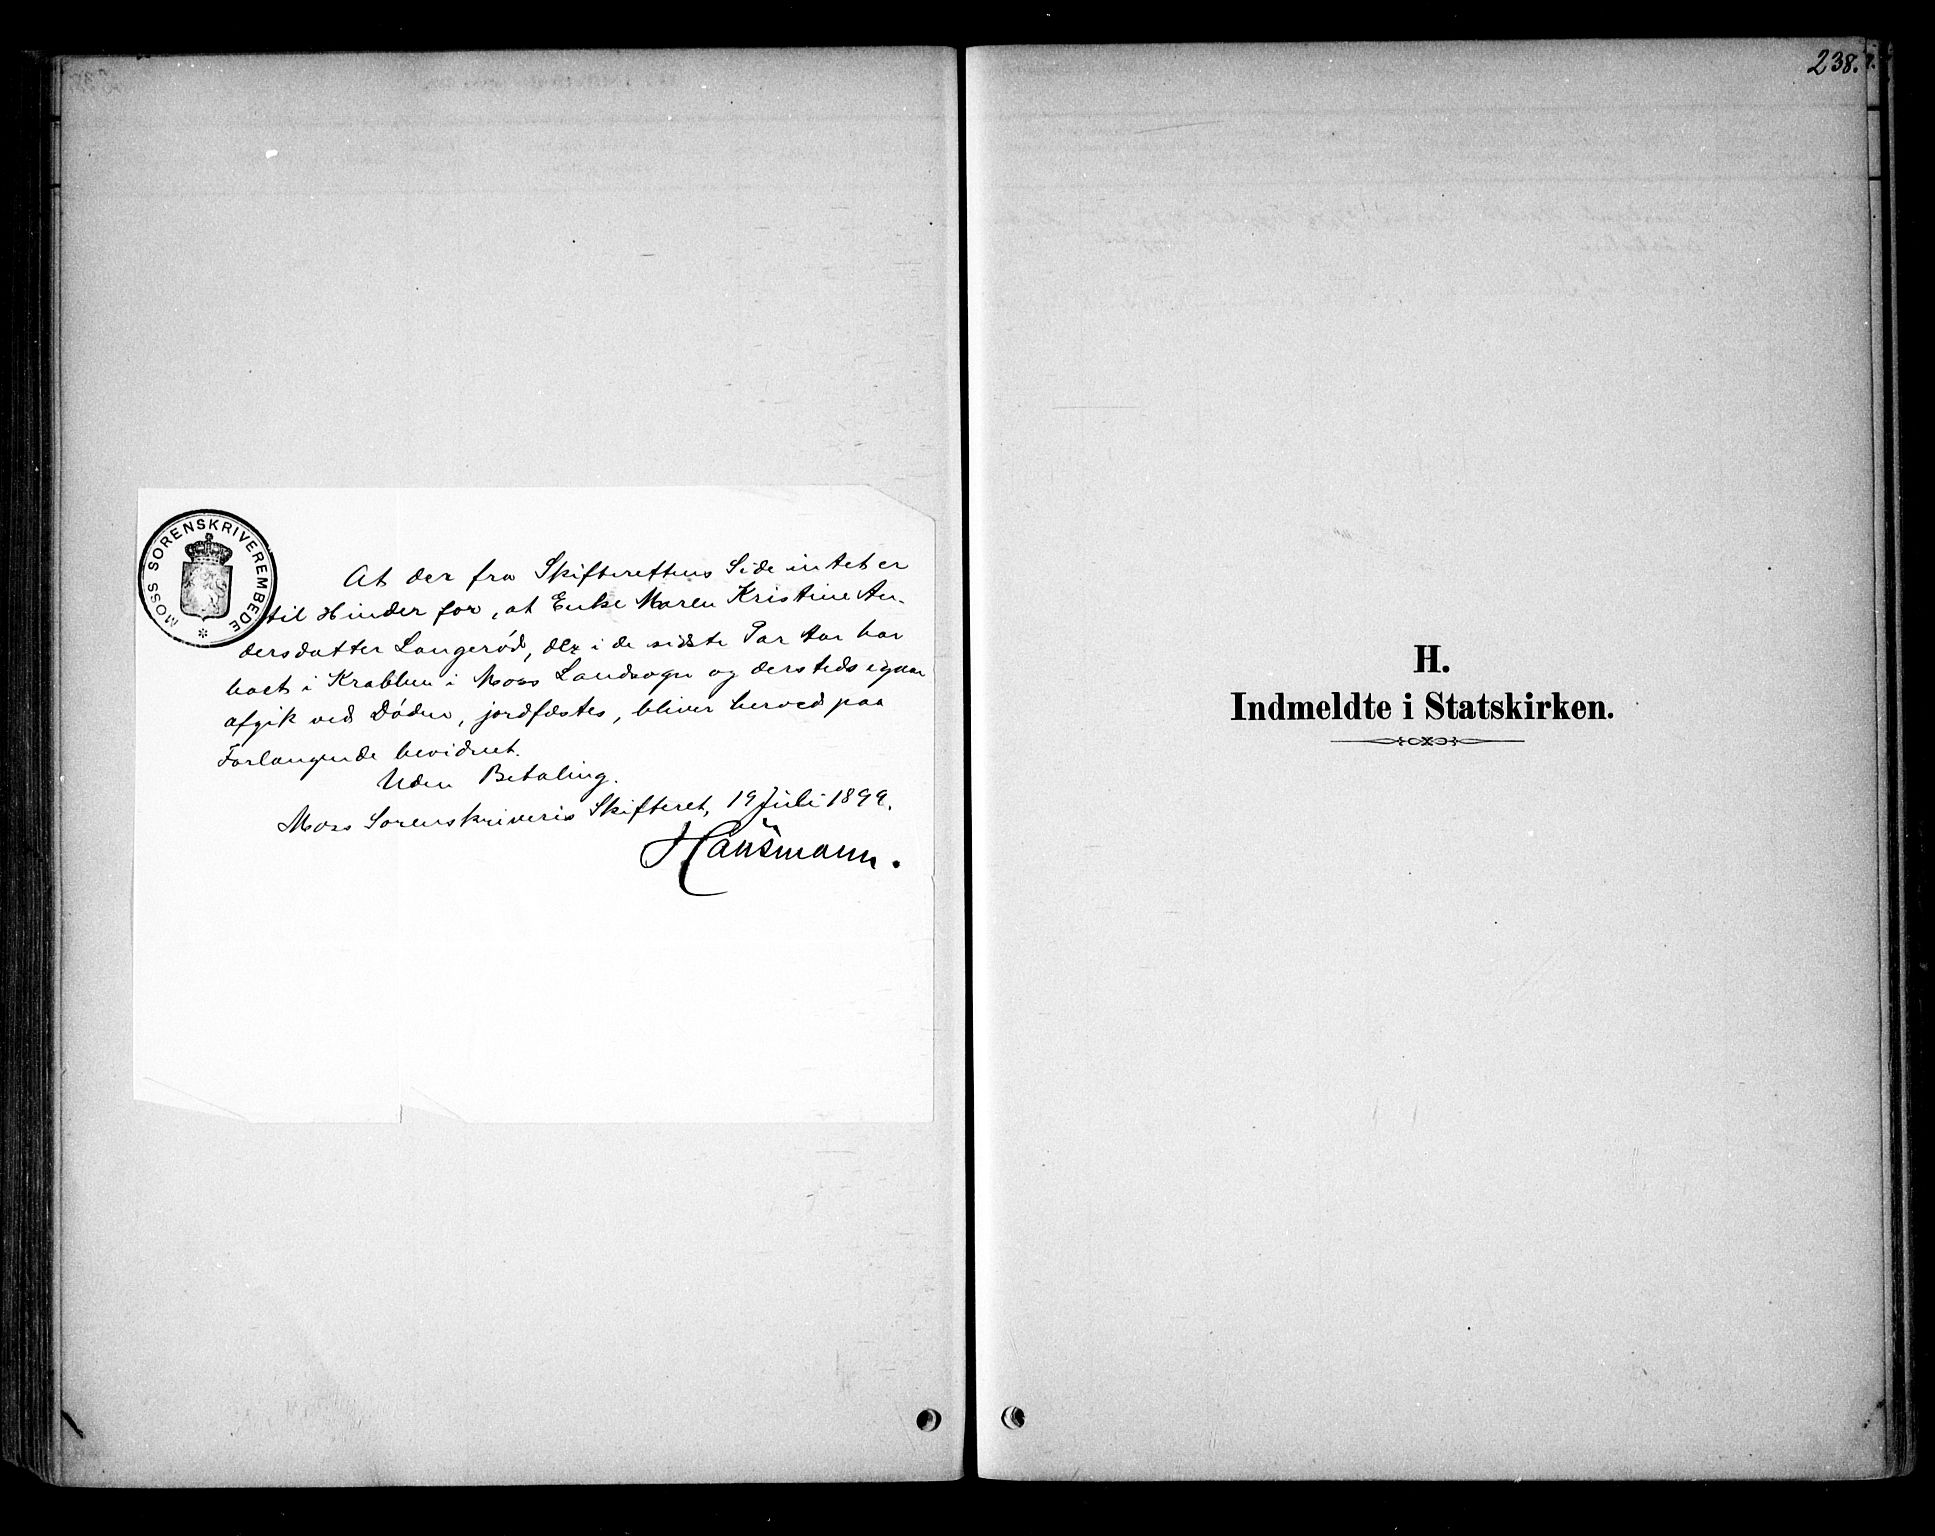 MOSS SORENSKRIVEREMBEDE
At der fra Skifterettens Side intet er
til Hinder for, at Enke Maren Kristine An-
dersdatter Langerød, der i de sidste Par Aar har
boet i Krabben i Moss Landsogn og dersteds igaar
afgik ved Døden, jordfæstes, bliver herved paa
Forlangende bevidnet.
Uden Betaling.
Moss Sorenskriveris Skifteret, 19 Juli 1899.
Hansmann.
238.
H.
Indmeldte i Statskirken.